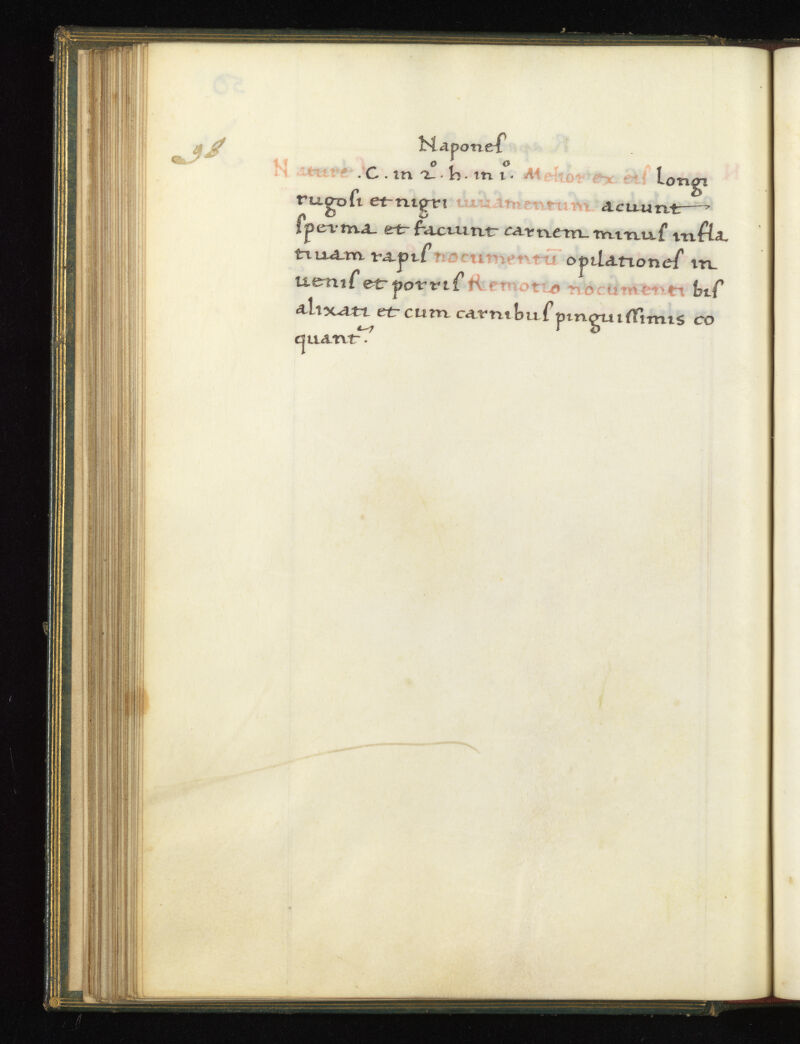 98
Naponeſ
Nature .C. in 2.º h. in i.º Melior ex eiſ longi
rugoſi et nigri iuuamentum acuunt
ſperma et faciunt carnem minuſ infla
tiuam rapiſ nocumentū opilationeſ in
ueniſ et porriſ Remotio nocumenti biſ
alixati et cum carnibuſ pinguiſſimis co
quant᷑.